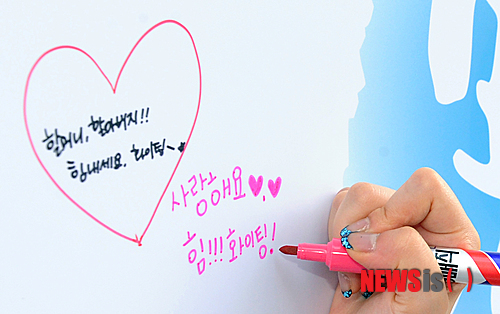 할머니, 할아버지!!
힘내세요, 화이팅~♥
사랑해요♥,♥
힘!!! 화이팅!
NEWSis